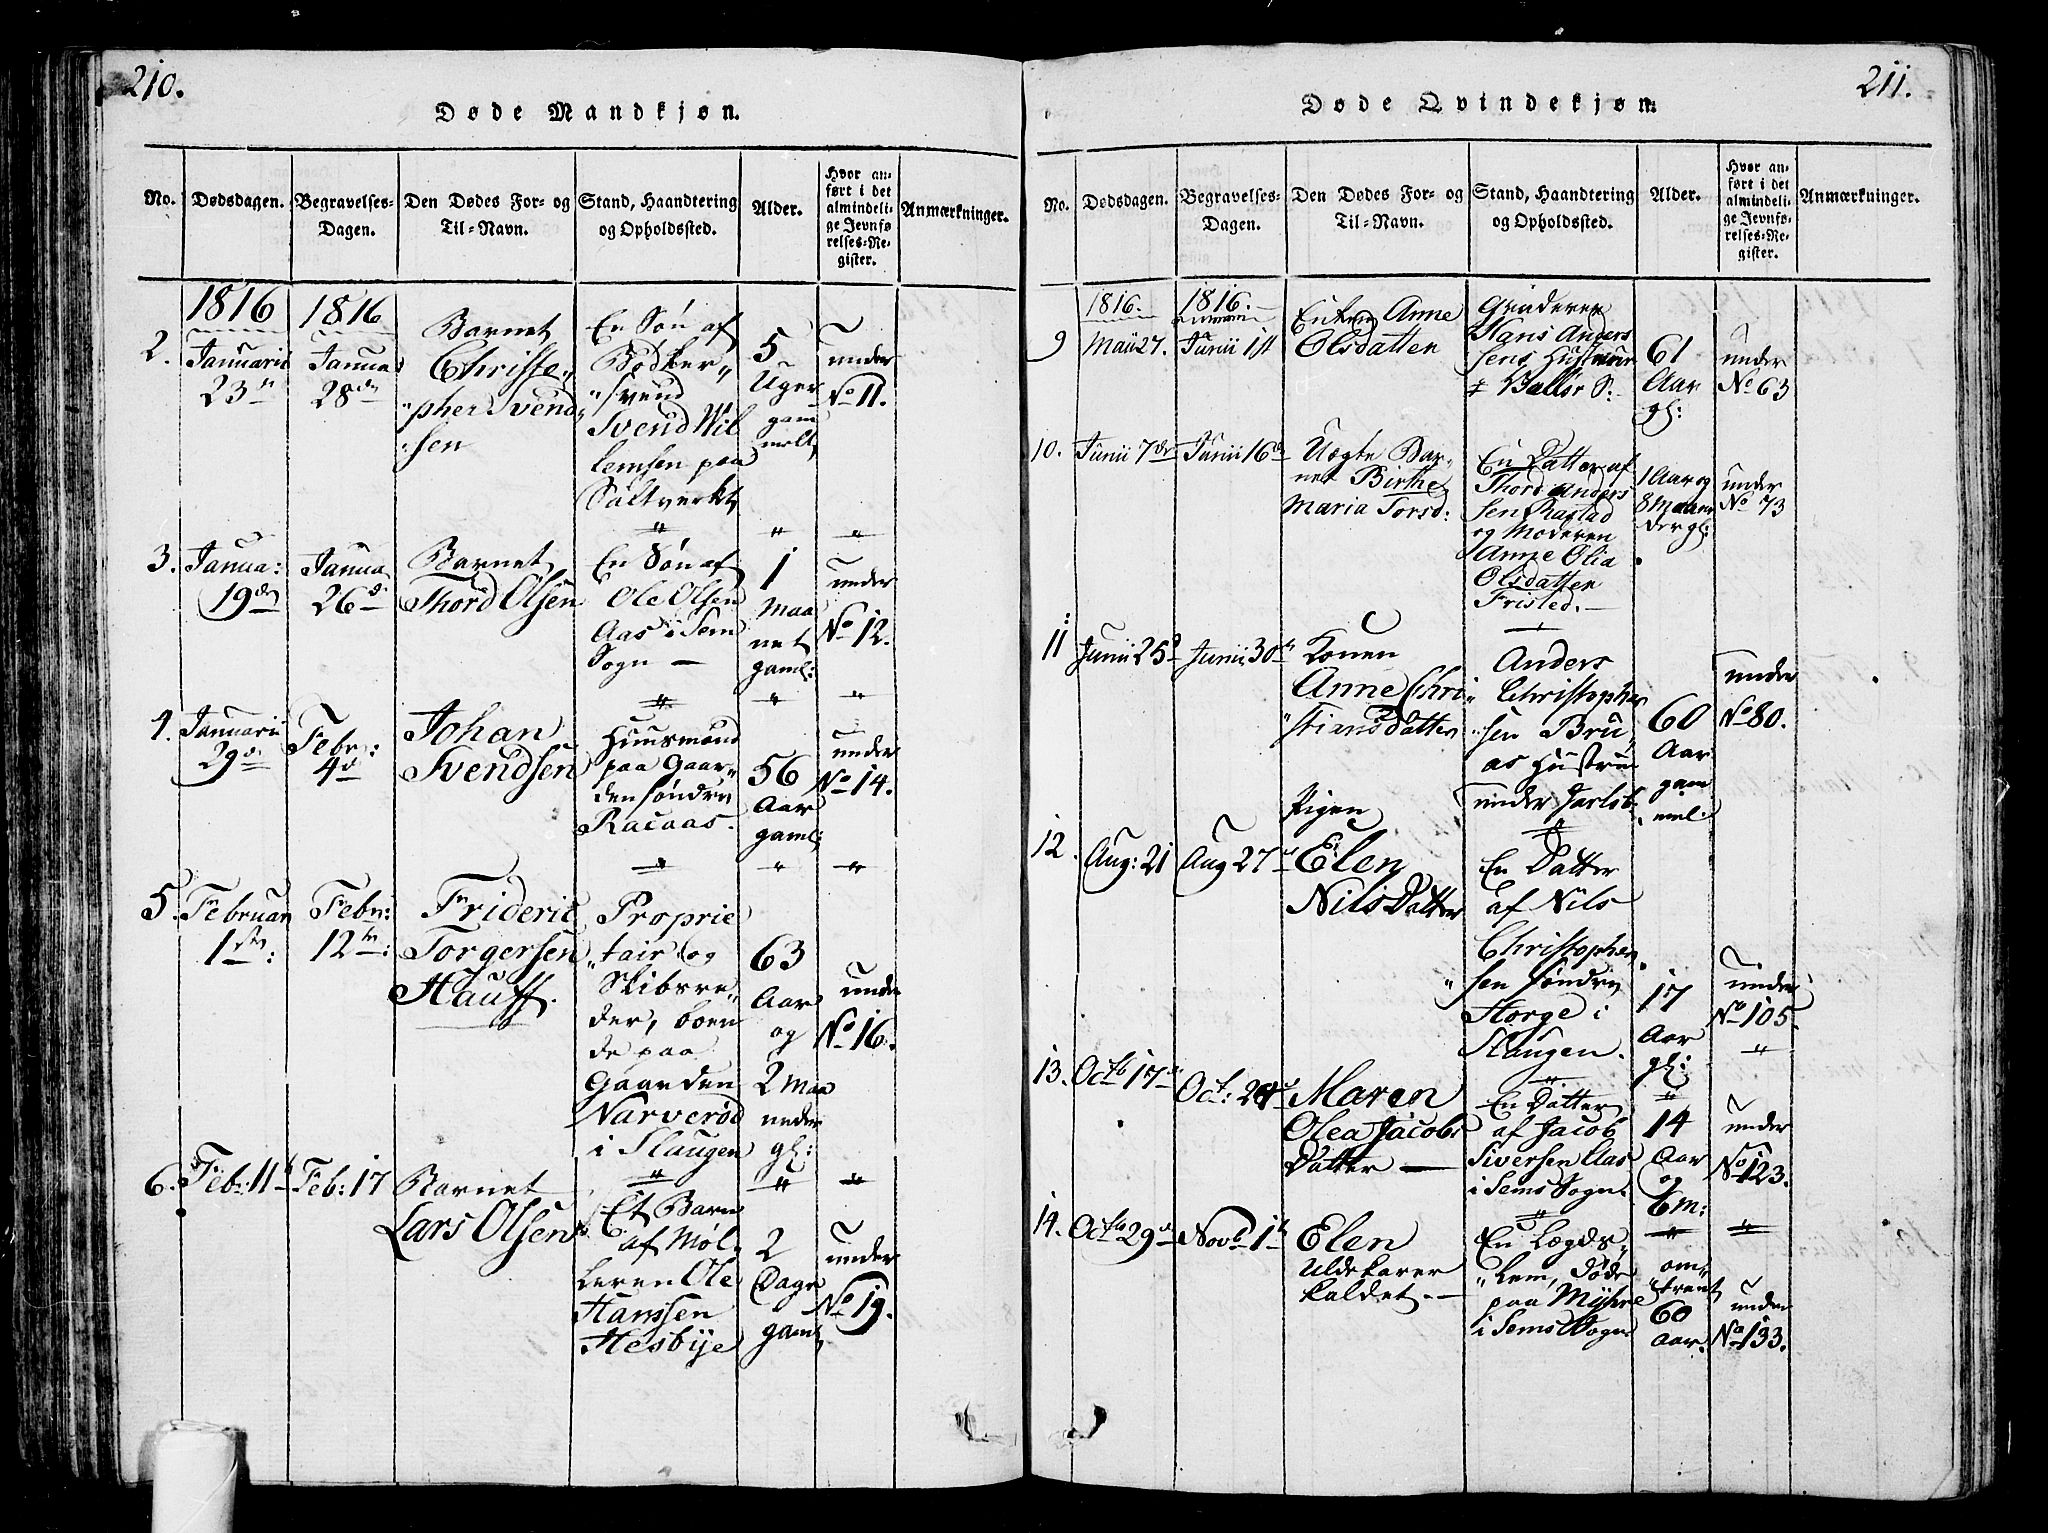 210.
Døde Mandkjøn.
No. Dødsdagen. Begravelses-Dagen. Den Dødes For- og Til-Navn. Stand, Haandtering og Opholdssted. Alder. Hvor anført i det almindelige Jevnførelses-Register. Anmærkninger.
1816 1816
2. Januarii 23de
Januar 28de
Barnet
Christo„
„pher Svend„
„sen
En Søn af
Bødker„
„svend
Svend Wil
lemsen paa
Saltverket
5
Uger
gam
melt
under
No 11.
3. Janua: 19de
Janua 26de
Barnet
Thord Olsen
En Søn af
Ole Olsen
Aas i Sem
Sogn —
1
Maa
net
gaml:
under
No 12.
4. Januarii 29de
Febr: 4de
Johan
Svendsen
Huusmand
paa Gaar„
den søndre
Racaas.
56
Aar
gaml:
under
No 14.
5. Februar 1ste:
Febr: 12te:
Frideric
Torgersen
Hauff.
Proprie
„tair og
Skibsre„
der, boen
de paa
Gaarden
Narverød
i Slaugen
63
Aar
og
2 Maa
neder
gl:
under
No 16.
6. Feb: 11te
Feb: 17
Barnet
Lars Olsen
Et Barn
af Møl„
leren Ole
Hanssen
Hesbye
2
Dage
gaml
under
No 19.
211.
Døde Qvindekjøn.
No. Dødsdagen. Begravelses-Dagen. Den Dødes For- og Til-Navn. Stand, Haandtering og Opholdssted. Alder. Hvor anført i det almindelige Jevnførelses-Register. Anmærkninger.
1816. 1816.
9 Maii 27.
Junii 1st
Enken Anne
Olsdatter
Hans Anders
sens
61
Aar
gl:
under
No 63
10. Junii 7de
Junii 16de
Uægte Bar„
net Birthe
Maria Torsd:
En Datter af
Thord Anders
sen Ragstad
og Moderen
Anne Olia
Olsdatter
Fristed. —
1 Aar og
8 Maane
der gl:
under
No 73
11 Junii 25d
Junii 30te
Konen
Anne Chri„
„stiansdatter
Anders
Christopher
„sen Bru,
as Hustru
under Jarlsb:
60
Aar
gam
mel:
under
No 80.
12. Aug: 21
Aug 27
Pigen
Elen
Nils Datter
En Datter
af Nils
Christopher
„sen søndre
Horge i
Slaugen.
17
Aar
gl:
under
No 105.
13. Octb 17de
Oct: 24de
Maren
Olea Jacobs
Datter —
En Datter
af Jacob
Siversen Aas
i Sems Sogn
14
Aar
og
6 M:
under
No 123.
14. Octb 29de
Novb 1te
Elen
Uldekarer
kaldet. —
En Lægds„
„Lem, døde
paa Myhre
i Sems Sogn
om„
„trent
60
Aar.
under
No 133.